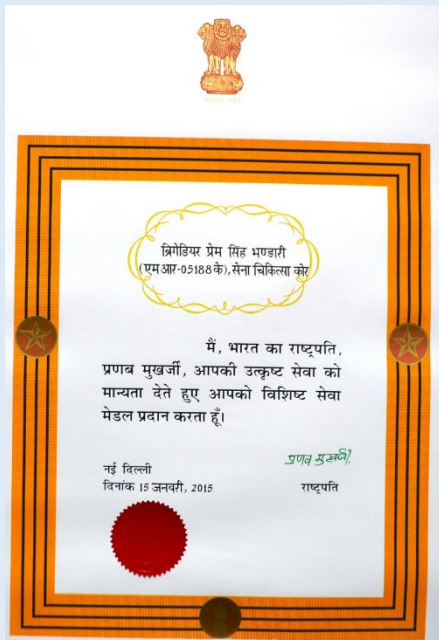 ब्रिगेडियर प्रेम सिंह भण्डारी
(एम आर-05188 के), सेना चिकित्सा कोर
मैं, भारत का राष्ट्रपति,
प्रणब मुखर्जी, आपकी उत्कृष्ट सेवा को
मान्यता देते हुए आपको विशिष्ट सेवा
मेडल प्रदान करता हूँ।
प्रणब मुखर्जी
नई दिल्ली
दिनांक 15 जनवरी, 2015 राष्ट्रपति